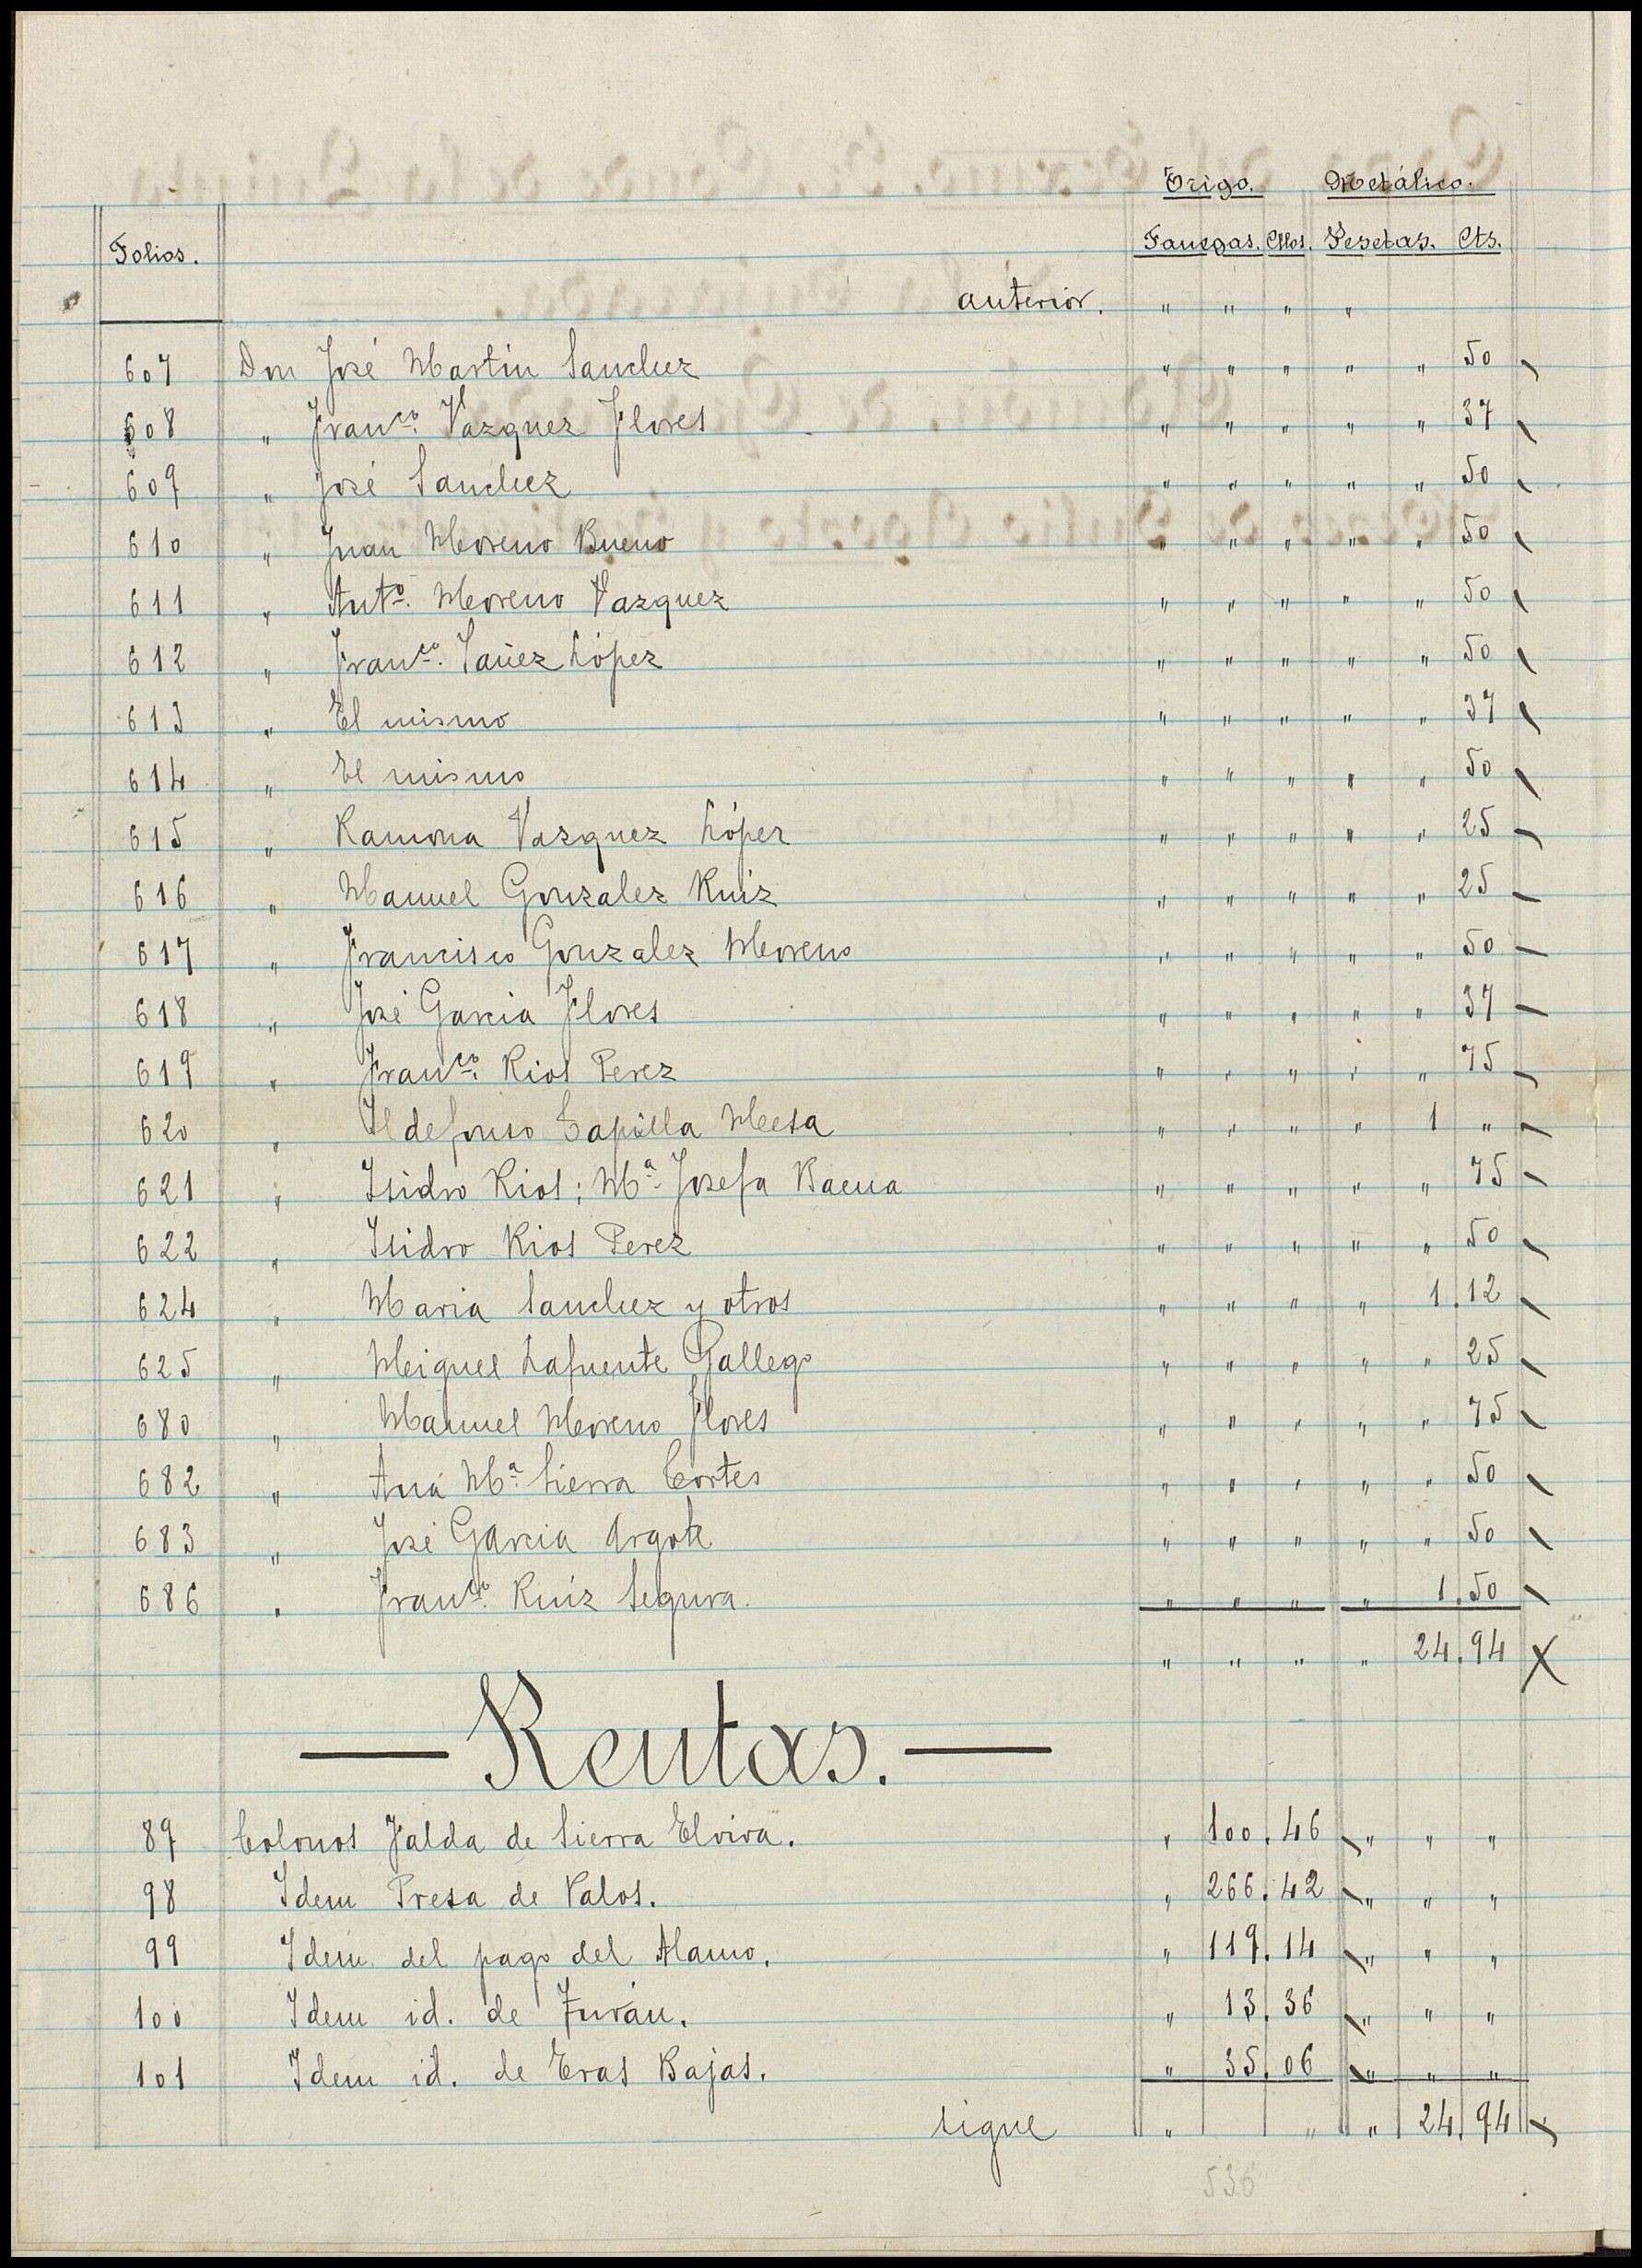 Trigo. Metálico.
Folios. Fanegas. Cllos. Pesetas. Cts.
anterior. " " " "
607 Don José Martin Sanchez " " " " " 50
608 " Franco. Vazquez Flores " " " " " 37
609 " José Sanchez " " " " " 50
610 " Juan Moreno Bueno " " " " " 50
611 " Anto. Moreno Vazquez " " " " " 50
612 " Franco. Yañez López " " " " " 50
613 " El mismo " " " " " 37
614 " El mismo " " " " " 50
615 " Ramona Vazquez López " " " " " 25
616 " Manuel Gonzalez Ruiz " " " " " 25
617 " Francisco Gonzalez Moreno " " " " " 50
618 " José Garcia Flores " " " " " 37
619 " Franco. Rios Perez " " " " " 75
620 " Ildefonso Capilla Mesa " " " " 1 "
621 " Isidro Rios; Ma. Josefa Baena " " " " " 75
622 " Isidro Rios Perez " " " " " 50
624 " Maria Sanchez y otros " " " " 1.12
625 " Miguel Lafuente Gallego " " " " " 25
680 " Manuel Moreno Flores " " " " " 75
682 " Ana Ma. Sierra Cortes " " " " " 50
683 " José Garcia Argote " " " " " 50
686 " Franco. Ruiz Segura. " " " " 1.50
" " " " 24.94
— Rentas. —
89 Colonos Falda de Sierra Elvira. " 100.46 " " "
98 Idem Presa de Valos. " 266.42 " " "
99 Idem del pago del Alamo. " 119.14 " " "
100 Idem id. de Zurán. " 13.36 " " "
101 Idem id. de Eras Bajas. " 35.06 " " "
sigue " " " 24.94
536